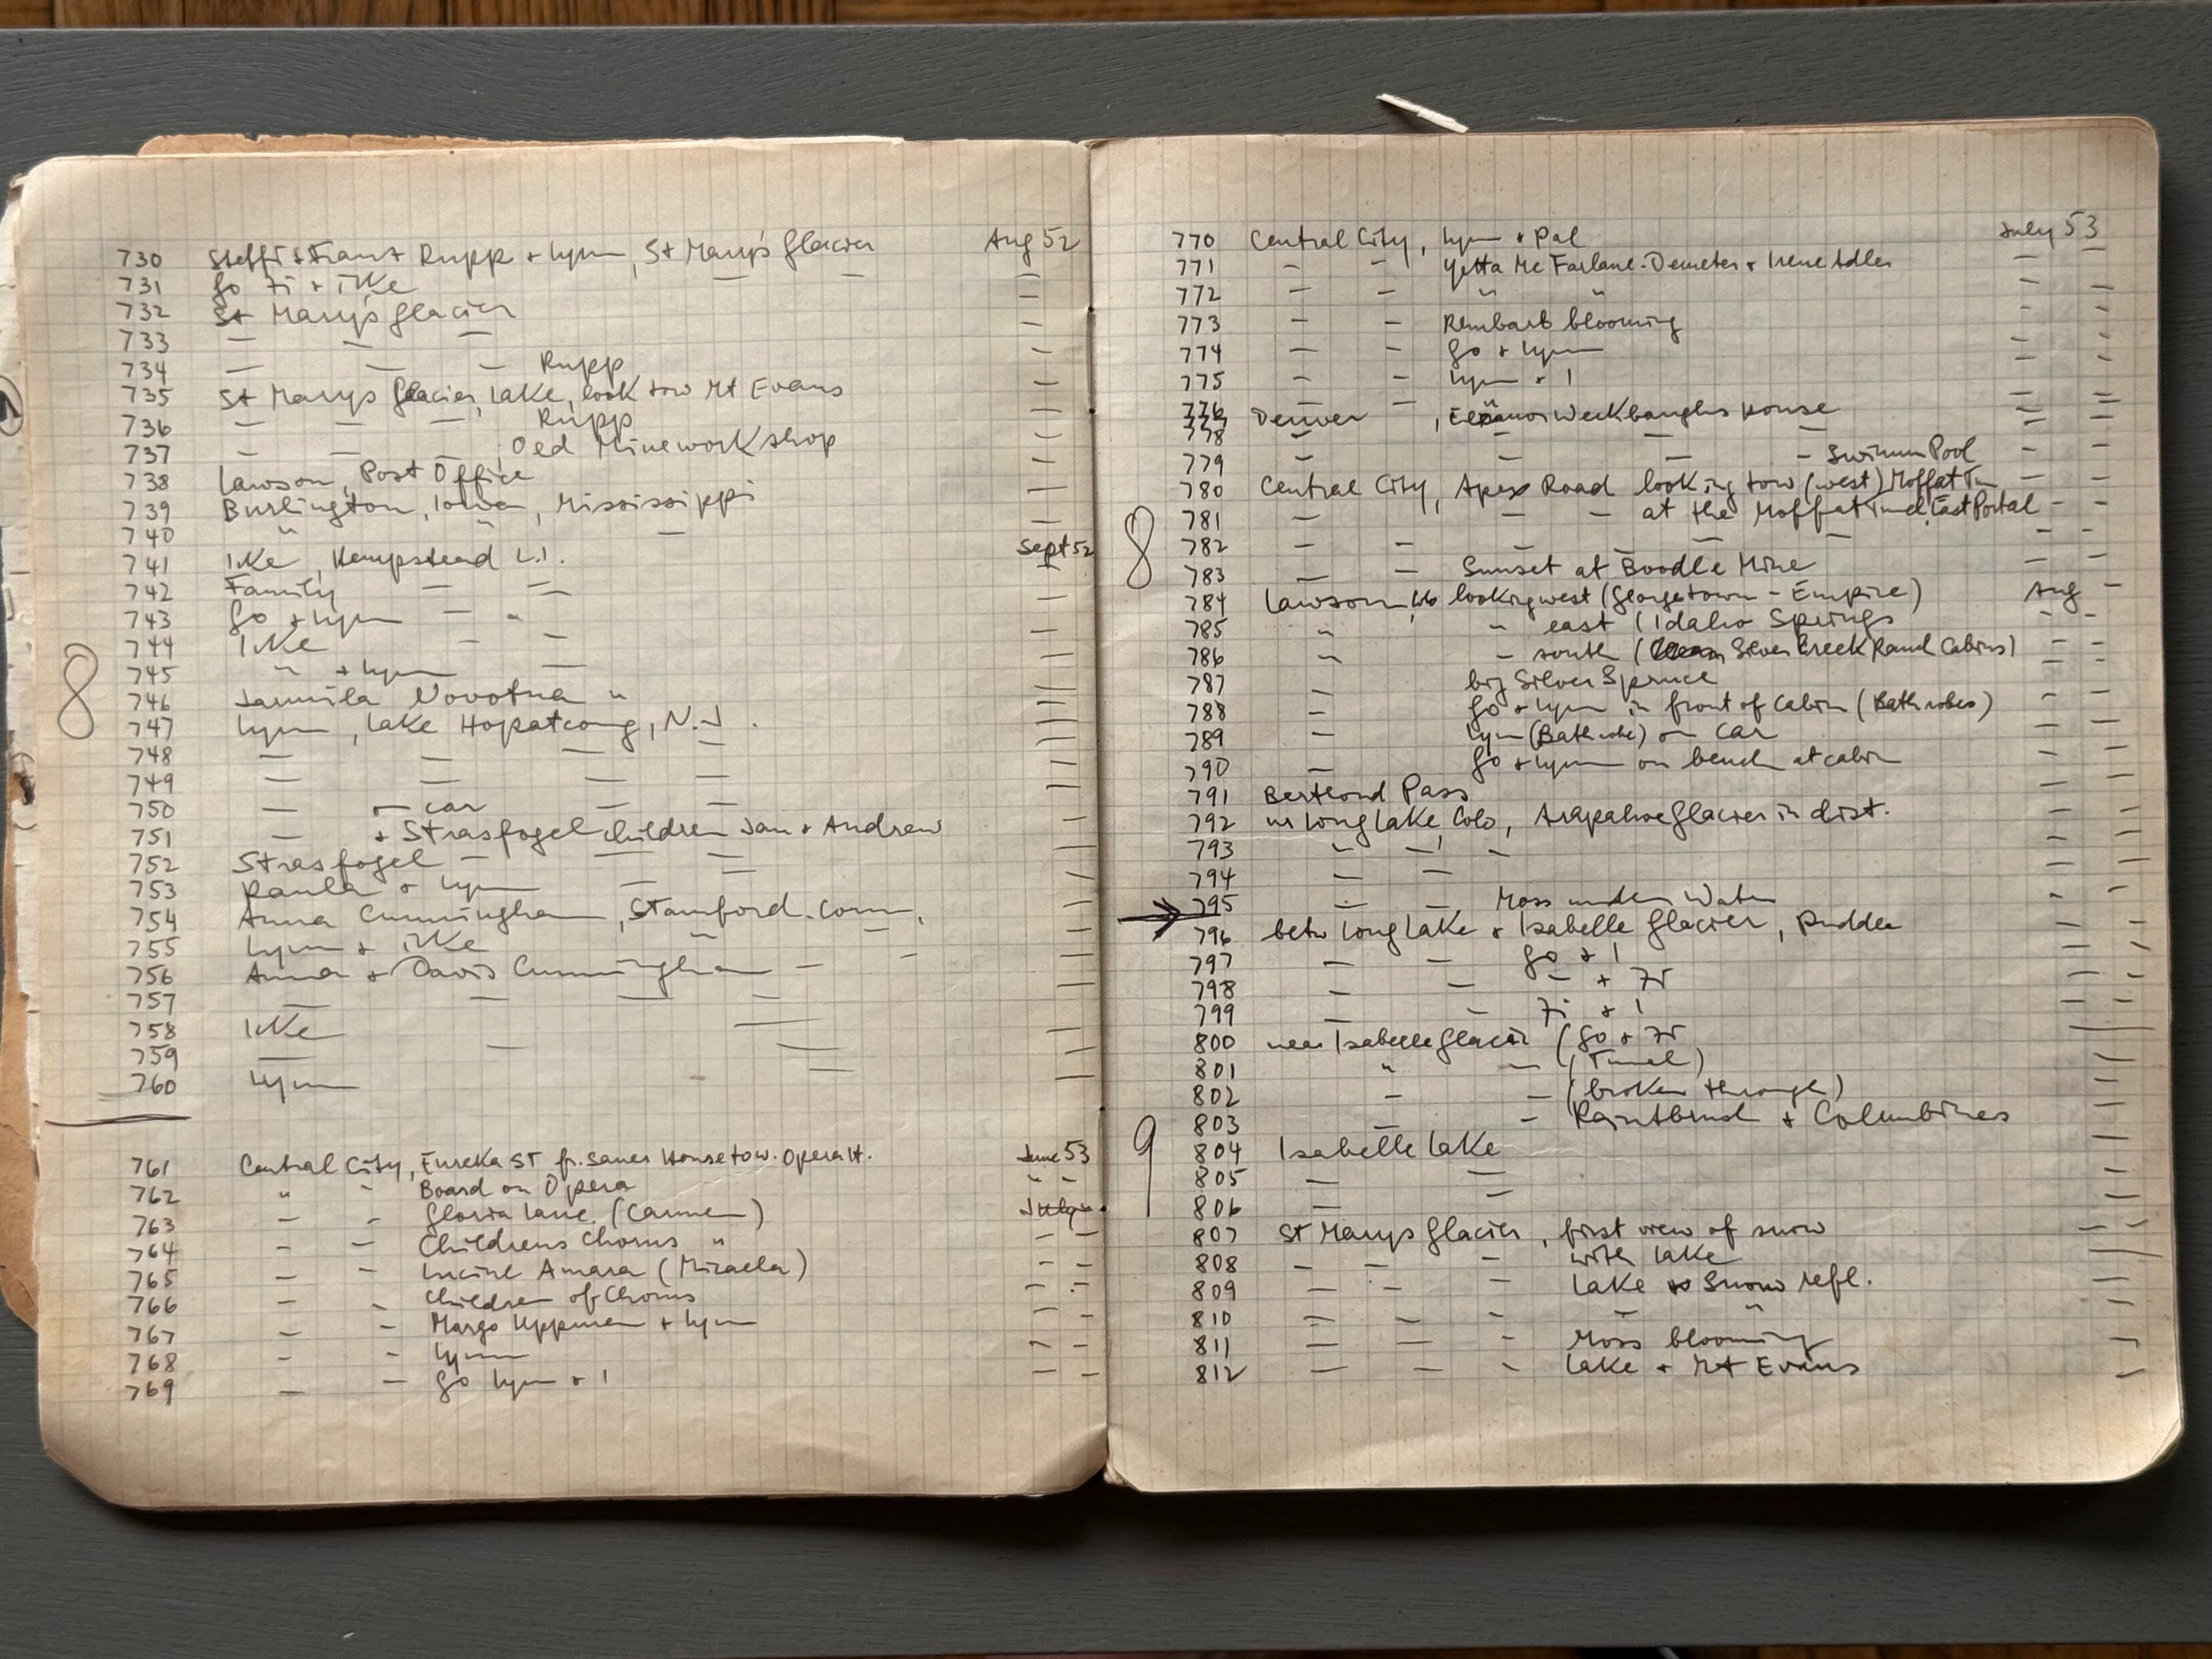 730 Steffi + Franz Rupp + Lynn, St Mary's Glacier Aug 52
731 Go Fi + Ike — — —
732 St Mary's Glacier —
733 — — — —
734 — — — Rupp —
735 St Marys Glacier, Lake, look tow Mt Evans —
736 — — — Rupp —
737 — — — , Oed Mineworkshop —
738 Lawson, Post Office —
739 Burlington, Iowa, Mississippi —
740 " " — —
741 Ike, Hempstead L.I. Sept 52
742 Family — — —
743 Go + Lynn — - —
744 Ike - — —
745 " + Lynn — —
746 Jarmila Novotna " —
747 Lynn, Lake Hopatcong, N.J. —
748 — — — — —
749 — — — — —
750 — — car — — —
751 — + Strasfogel Children Jan + Andrew —
752 Strasfogel — — — —
753 Paula + Lynn — — —
754 Anna Cunningham, Stamford. Conn. —
755 Lynn + Ike " — —
756 Anna + Davis Cunningham — - —
757 — — — — —
758 Ike — —
759 — — — —
760 Lynn — —
761 Central City, Eureka St fr. Sauer House tow. Opera H. June 53
762 " - Board on Opera " "
763 - - Gloria Lane (Carmen) July
764 - - Childrens Chorus " - -
765 - - Lucine Amara (Micaela) - -
766 - - Children of Chorus - -
767 - - Margo + Lynn - -
768 - - Lynn - -
769 - - Go Lynn + I - -
8
770 Central City, Lynn + Pal July 53
771 - - Yetta Mc Farlane-Demeter + Irene Adler - -
772 - - " " - -
773 - - blooming - -
774 - - Go + Lynn - -
775 - - Lynn + I - -
776 - -
777 Denver, House - -
778 - - - - - -
779 - - - - Swimm Pool - -
780 Central City, Apex Road looking tow (west) Moffat Tun - -
781 - - - at the Moffat Tunnel, East Portal - -
782 - - - - - - - -
783 - - Sunset at Boodle Mine - -
784 Lawson, looking west (Georgetown - Empire) Aug -
785 " " east (Idaho Springs - -
786 " - south ( Silver Creek Ranch Cabins) - -
787 - big Silver Spruce - -
788 - Go + Lynn in front of Cabin (Bathrobes) - -
789 - Lynn (Bathrobe) on car - -
790 - Go + Lynn on bench at cabin - -
791 Berthoud Pass - -
792 nr Long Lake Colo, Arapahoe Glacier in dist. - -
793 - - - - -
794 - - - -
795 - - Moss under Water - -
796 betw Long Lake + Isabelle Glacier, - -
797 - - Go + I - -
798 - - - + Fi - -
799 - - Fi + I - -
800 near Isabelle Glacier (Go + Fi - -
801 " - (Tunnel) - -
802 - - (broken through) - -
803 - - Paintbrush + Columbines - -
804 Isabelle Lake - -
805 - - - -
806 - - - -
807 St Marys Glacier, first view of snow - -
808 - - - with lake - -
809 - - - Lake Snow refl. - -
810 - - - - " -
811 - - - Moss blooming -
812 - - - Lake + Mt Evans -
8
9